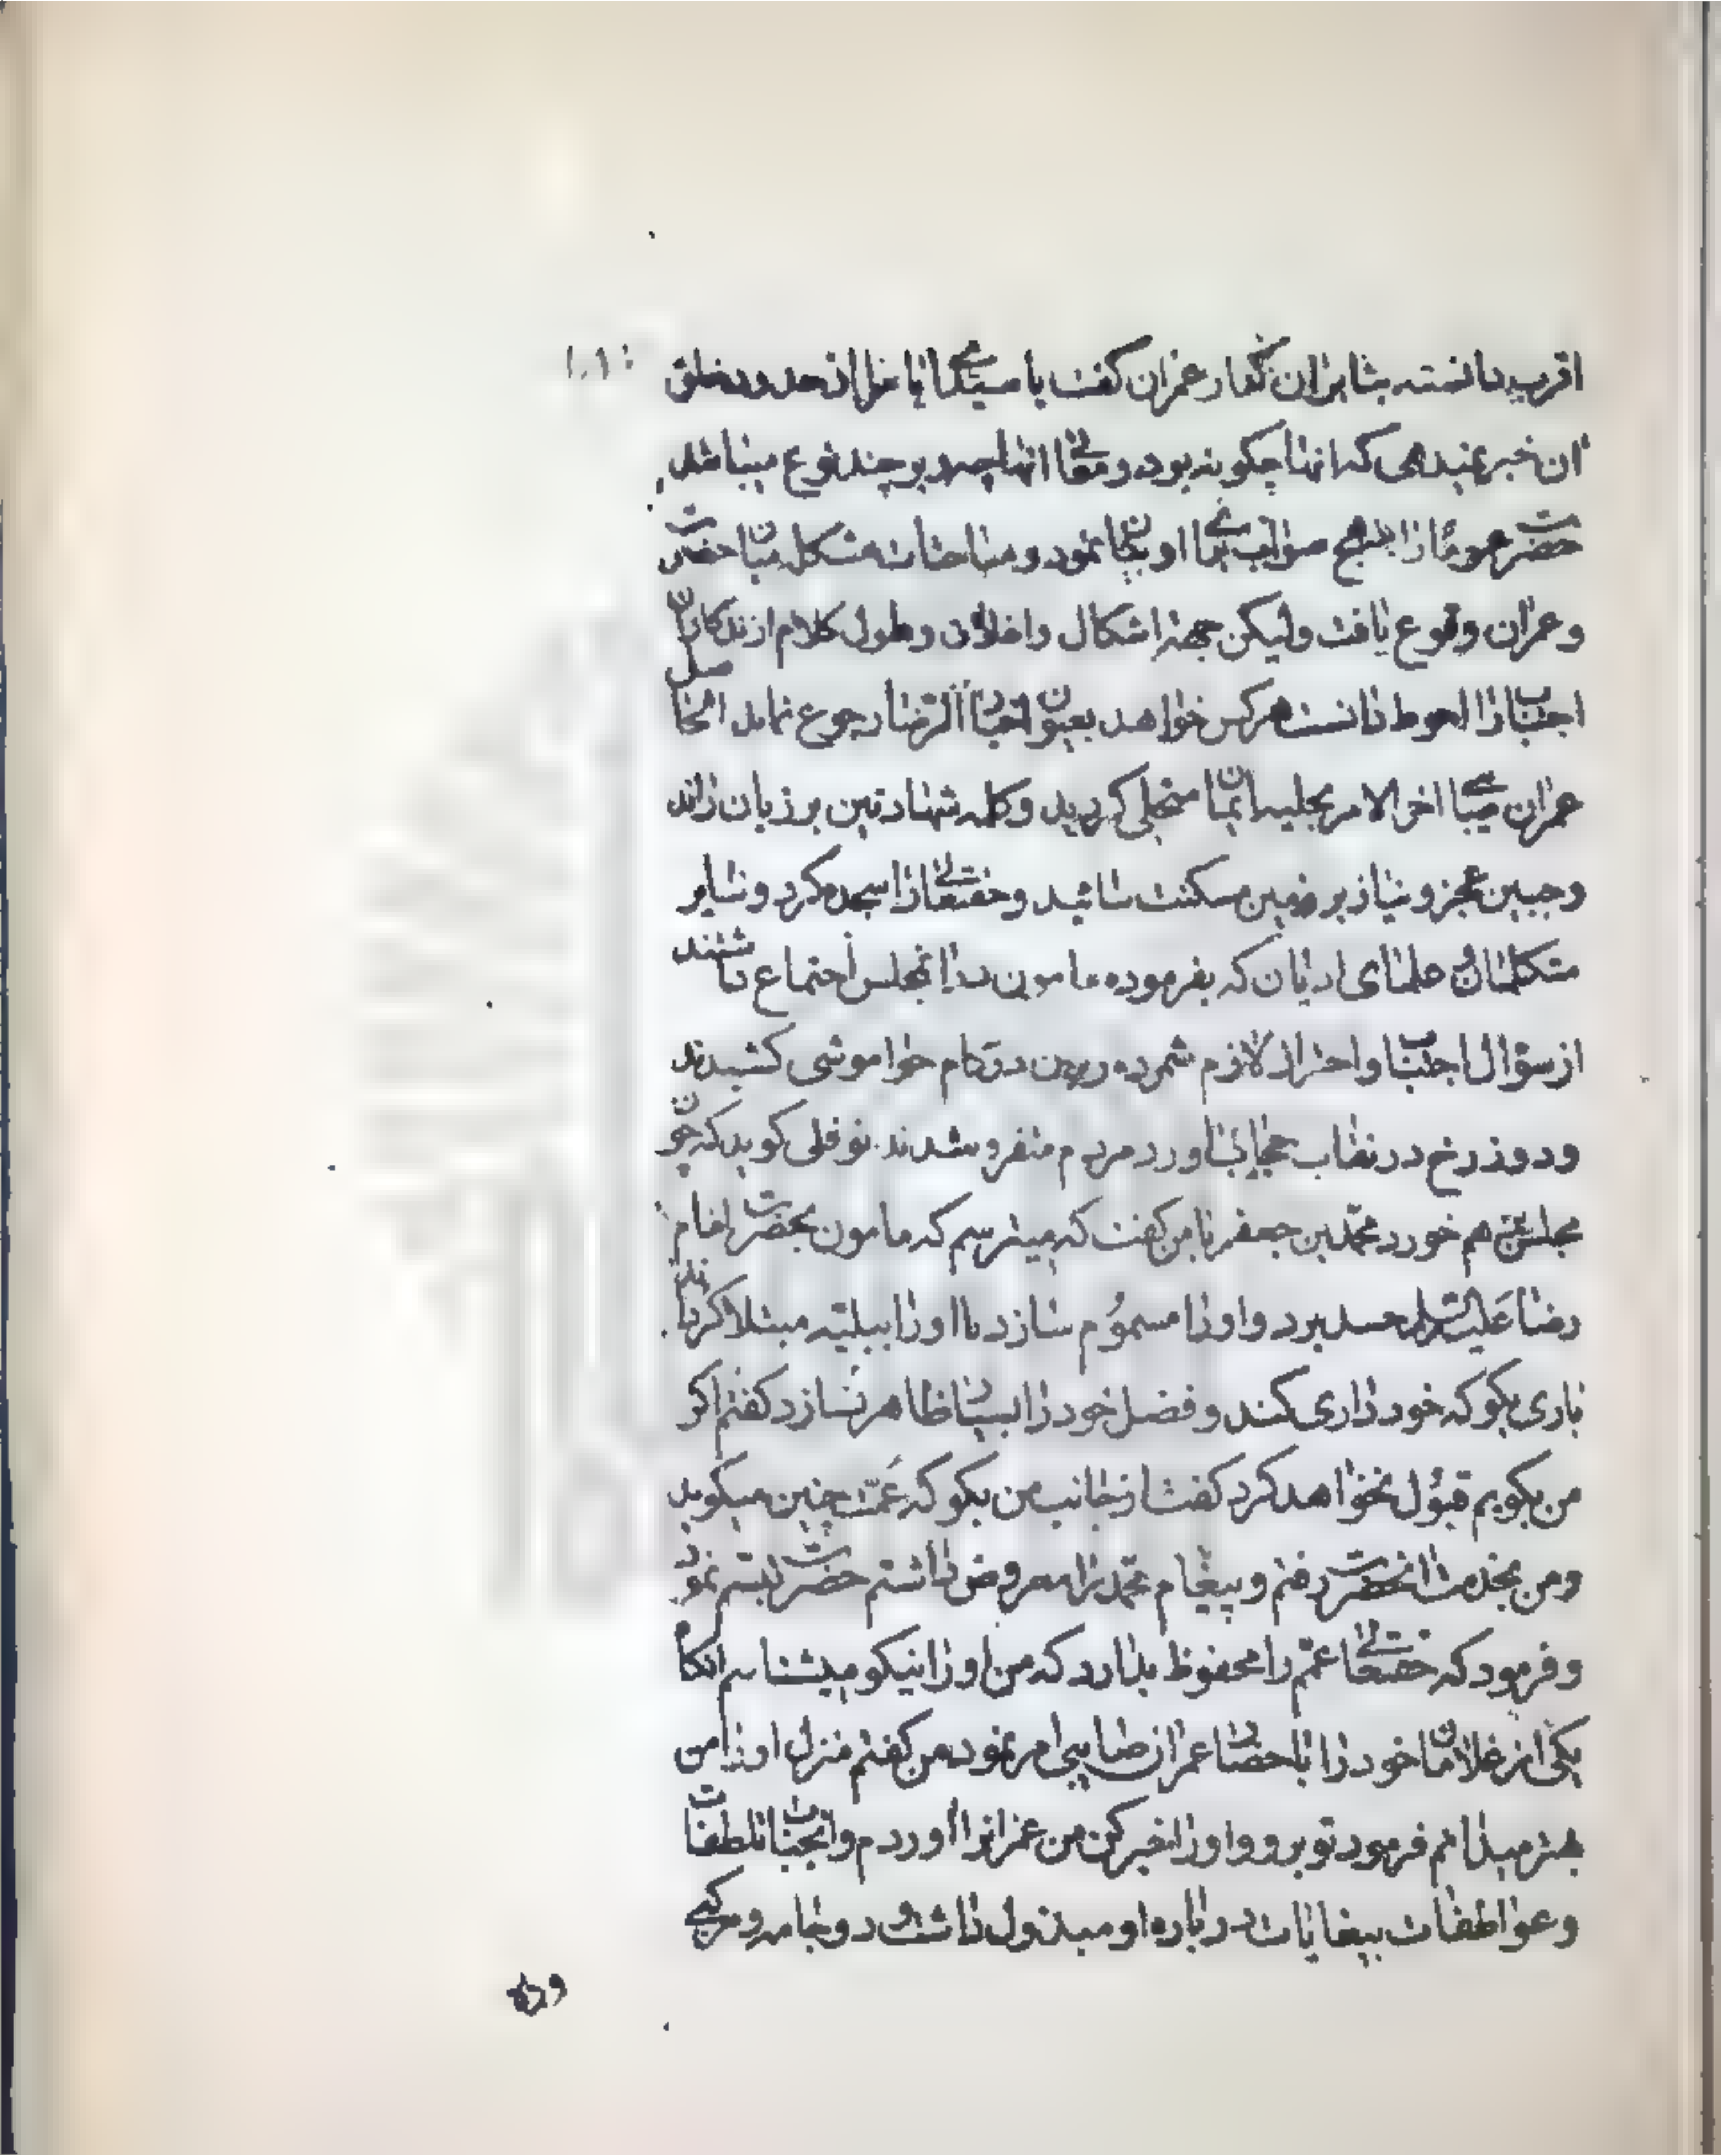 اقرب دانسته بنابران کفار عمران کفت یا سیدی ایا مرا از حدود خلق
ان خبر نمیدهی که انها چکونه بود و معانی انها چه و بر چند نوع میباشد
حضرت همو ما را صواب با او بیان نمود و مباحثات مشکل میان حضرت
و عمران وقوع یافت ولیکن جهة اشکال و اغلاق و طول کلام از ذکر ان
اجتناب را احوط دانست هرکس خواهد بعیون اخبار الرضا رجوع نماید الحاصل
عمران صابی اخر الامر بحلیه ایمان متحلی کردید و کلمه شهادتین بر زبان راند
و جبین عجز و نیاز بر زمین مسکنت سائید و حقتعالی را سجده کرد و سایر
متکلمان و علمای ادیان که بفرموده مامون در انمجلس اجتماع داشتند
از سؤال اجتناب و احتراز لازم شمرده در کام خواموشی کشیدند
و در نقاب حجاب اورد مردم متفرق شدند نوفلی کوید که چون
مجلس بر هم خورد محمد بن جعفر با من کفت که میترسم که مامون بحضرت امام
رضا علیه السلام حسد برد و او را مسموم سازد یا او را ببلیه مبتلا کرداند
باری بکو که خود داری کند و فضل خود را بسیار ظاهر نسازد کفتم اکر
من بکویم قبول نخواهد کرد کفت از جانب من بکو که عمت چنین میکوید
و من بخدمت انحضرت رفتم و پیغام محمد را معروض داشتم حضرت تبسم نمود
و فرمود که حقتعالی عمم را محفوظ بدارد که من او را نیکو میشناسم انکاه
یکی از غلامان خود را باحضار عمران صابی امر نمود من کفتم منزل او را من
بهتر میدانم فرمود تو برو و او را خبر کن من عمرانرا اوردم و انجناب تلطفات
و عواطفات بیغایات در باره او مبذول داشت و دو جامه و مرکبی